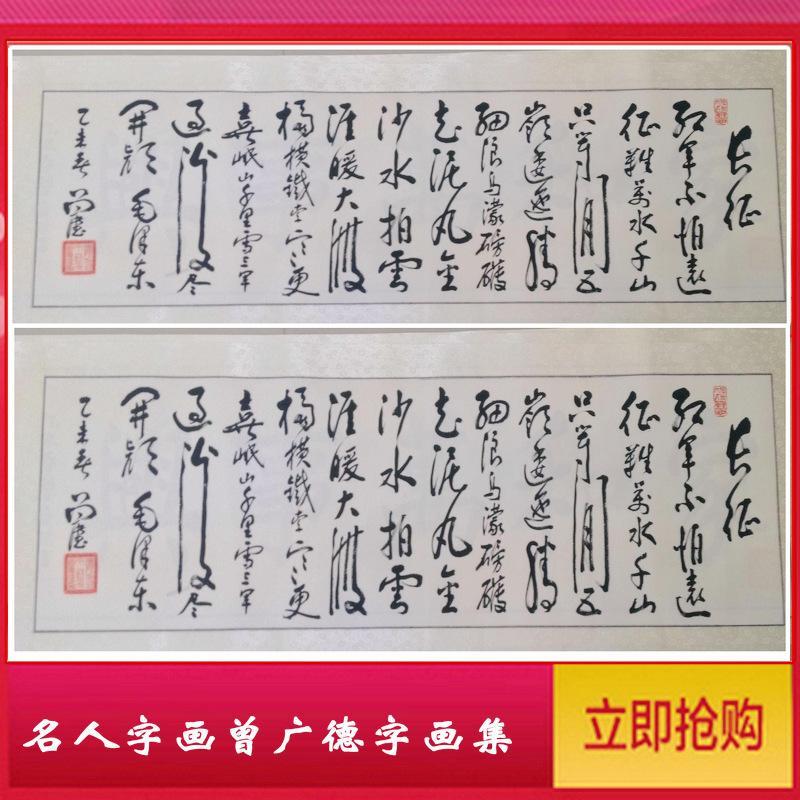 长征
红军不怕远
征難萬水千山
只等閒五
嶺逶迤騰
细浪烏濛磅礴
走泥丸金
沙水拍雲
涯暖大渡
橋横鐵索寒更
喜岷山千里雪三军
过後尽
開颜 毛泽东
乙未春
长征
红军不怕远
征難萬水千山
只等閒五
嶺逶迤騰
细浪烏濛磅礴
走泥丸金
沙水拍雲
涯暖大渡
橋横鐵索寒更
喜岷山千里雪三军
过後尽
開颜 毛泽东
乙未春
名人字画曾广德字画集
立即抢购